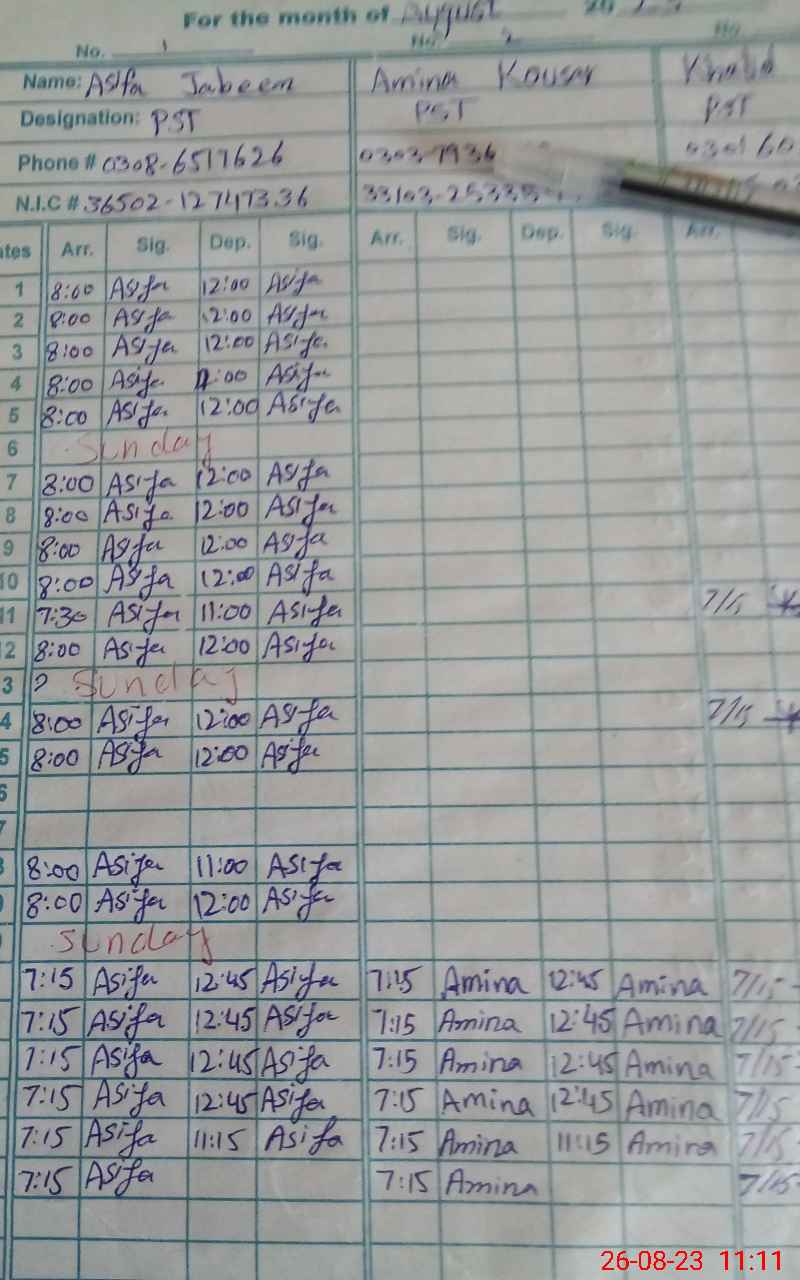 For the month of August 20
No. 1 No. 2 No
Name: Asifa Jabeen Amina Kousar Khalid
Designation: PST PST PST
Phone # 0308-6517626 0303-7936 030160
N.I.C # 36502-12 33103-25335
ates Arr. Sig. Dep. Sig. Arr. Sig. Dep. Sig. Arr.
1 8:00 Asifa 12:00 Asifa
2 8:00 Asifa 12:00 Asifa
3 8:00 Asifa 12:00 Asifa
4 8:00 Asifa :00 Asifa
5 8:00 Asifa 12:00 Asifa
6 Sunday
7 8:00 Asifa 12:00 Asifa
8 8:00 Asifa 12:00 Asifa
9 8:00 Asifa 12:00 Asifa
10 8:00 Asifa 12:00 Asifa
11 7:30 Asifa 11:00 Asifa 7/15
2 8:00 Asifa 12:00 Asifa
3 Sunday
4 8:00 Asifa 12:00 Asifa 7/15
5 8:00 Asifa 12:00 Asifa
6
7
8:00 Asifa 11:00 Asifa
8:00 Asifa 12:00 Asifa
Sunday
7:15 Asifa 12:45 Asifa 7:15 Amina 12:45 Amina 7/15
7:15 Asifa 12:45 Asifa 7:15 Amina 12:45 Amina 7/15
7:15 Asifa 12:45 Asifa 7:15 Amina 12:45 Amina 7/15
7:15 Asifa 12:45 Asifa 7:15 Amina 12:45 Amina 7/15
7:15 Asifa 11:15 Asifa 7:15 Amina 11:15 Amina 7/15
7:15 Asifa 7:15 Amina 7/15
26-08-23 11:11